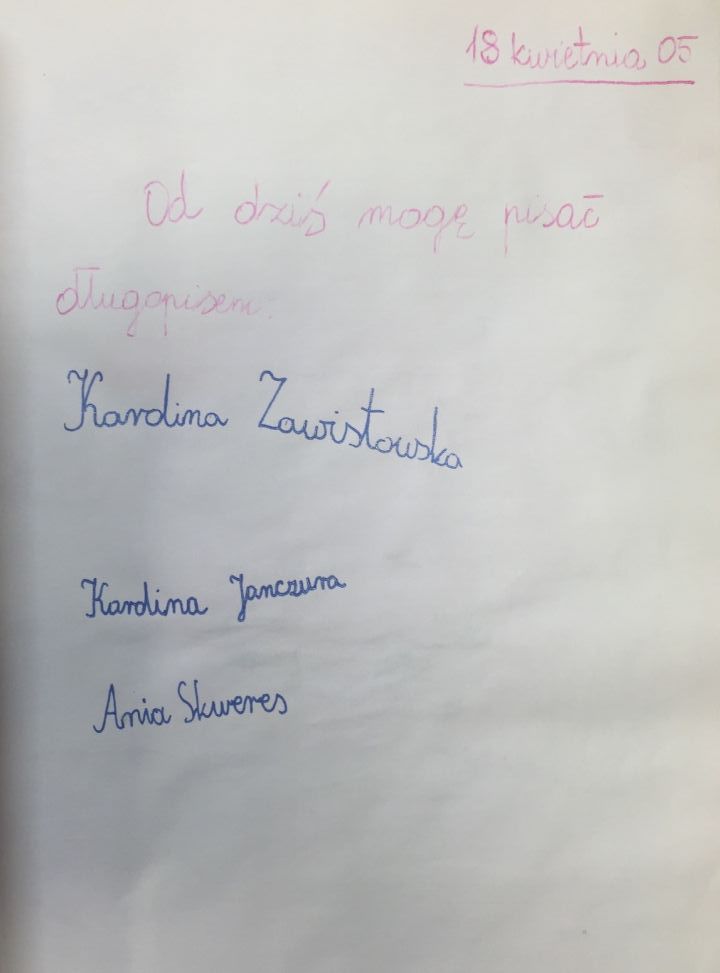 18 kwietnia 05
Od dziś mogę pisać
długopisem.
Karolina Zawistowska
Karolina Janczura
Ania Skweres